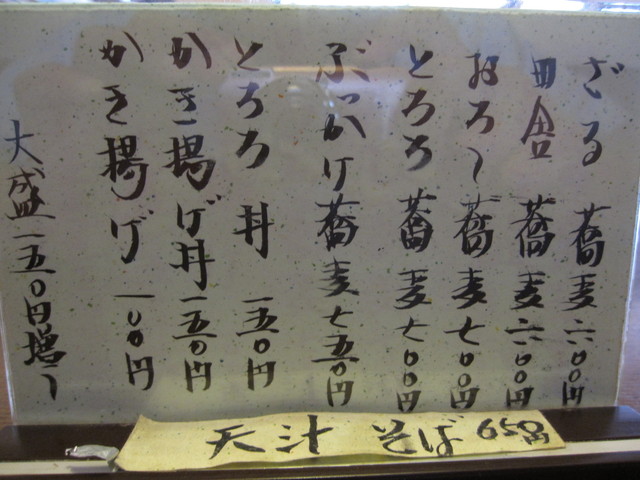 ざる蕎麦六〇〇円
田舎蕎麦六〇〇円
おろし蕎麦七〇〇円
とろろ蕎麦七〇〇円
ぶっかけ蕎麦七五〇円
とろろ丼一五〇円
かき揚げ丼一五〇円
かき揚げ一〇〇円
大盛一五〇円増し
天汁そば650円